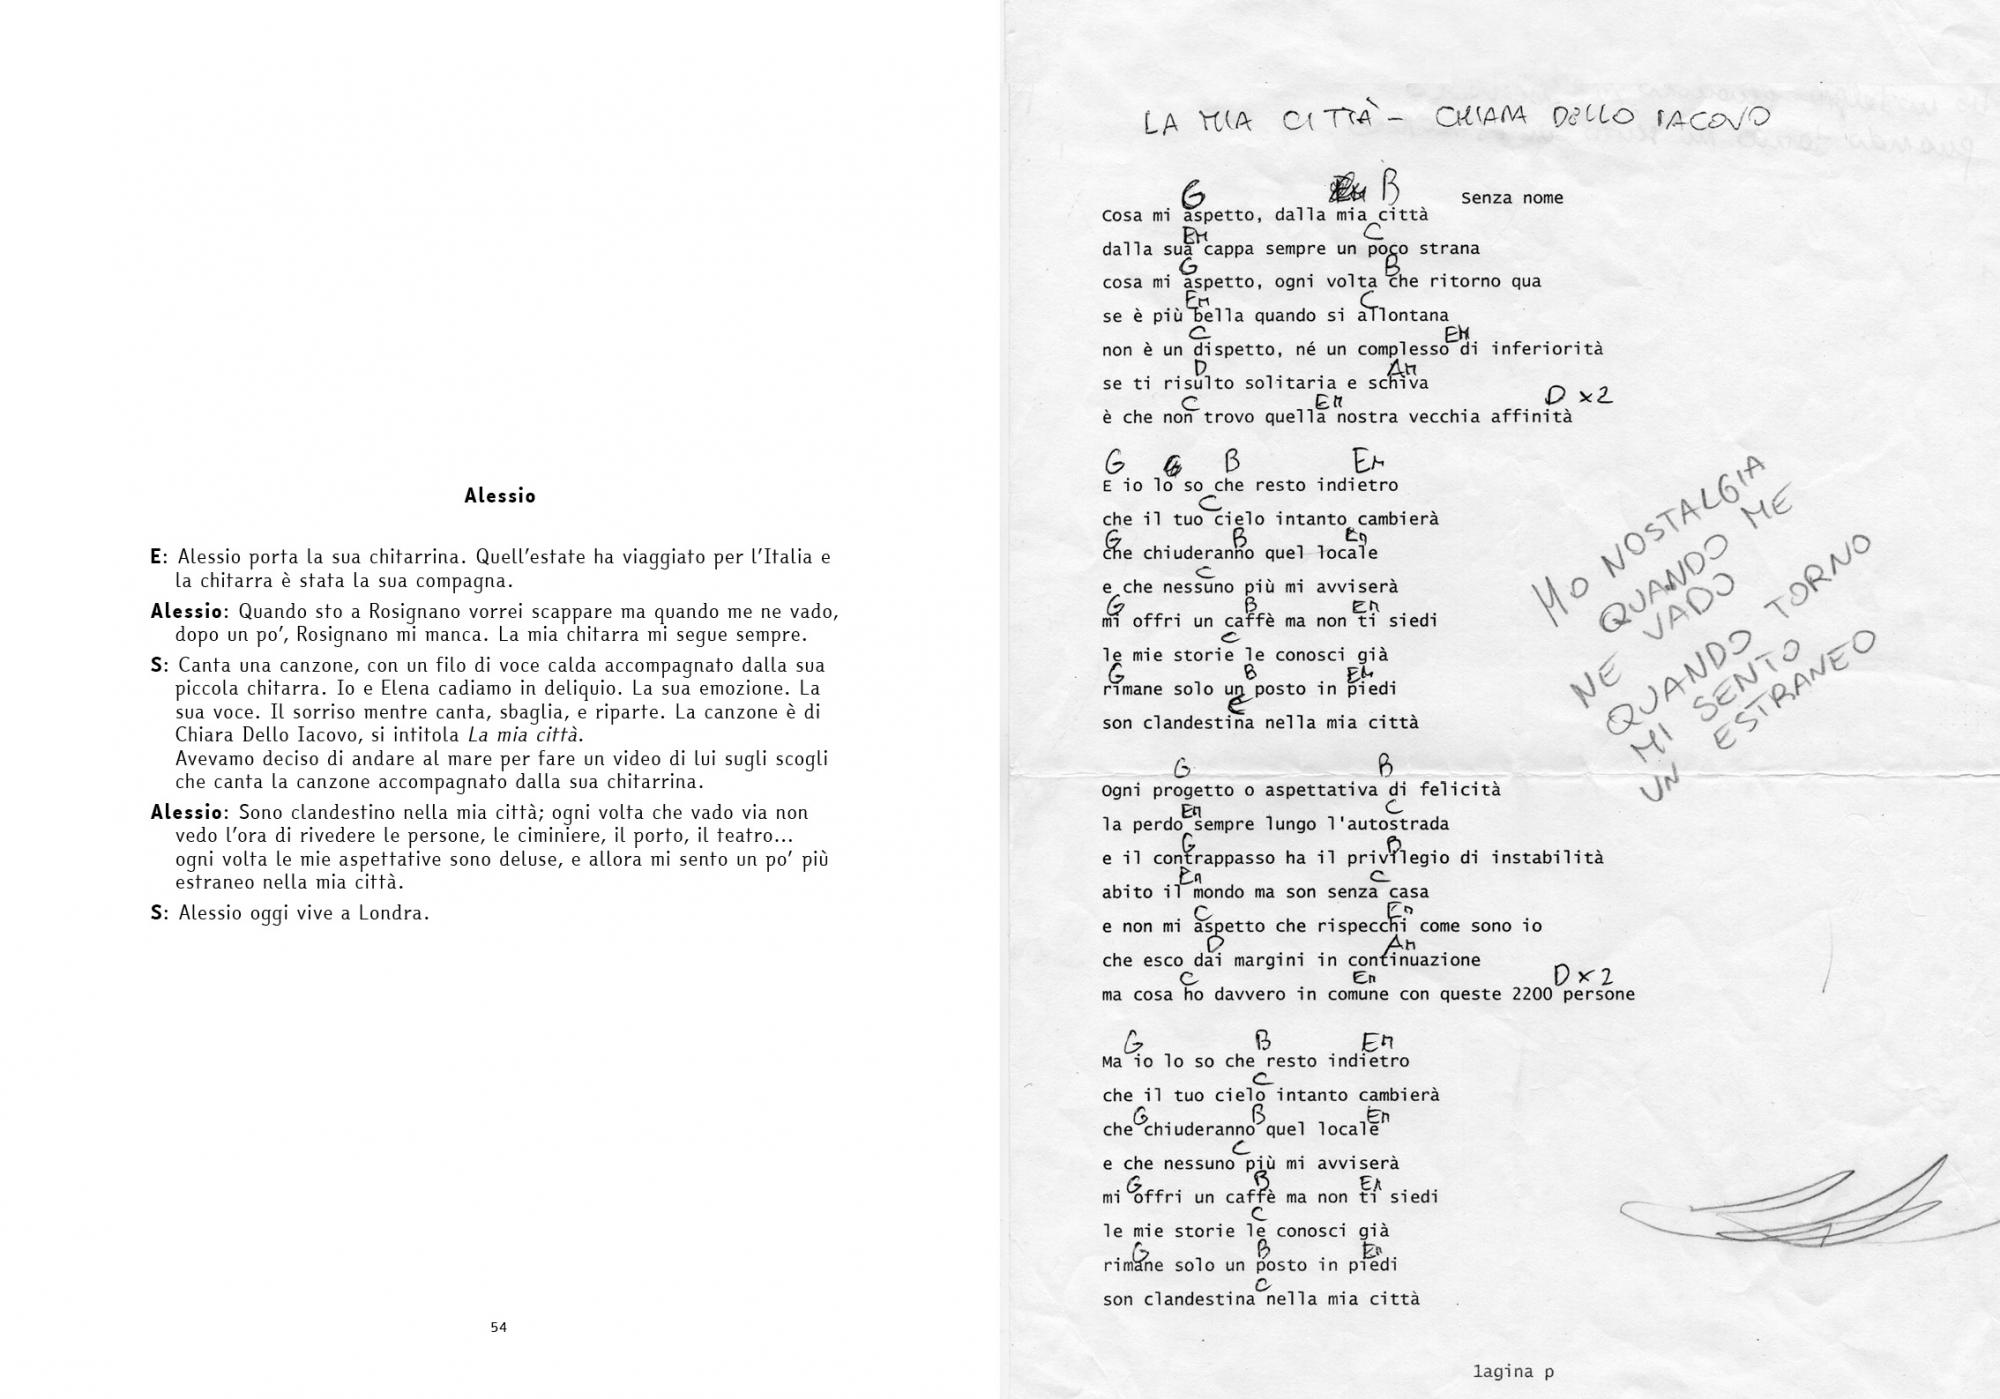 Alessio
E: Alessio porta la sua chitarrina. Quell’estate ha viaggiato per l’Italia e
la chitarra è stata la sua compagna.
Alessio: Quando sto a Rosignano vorrei scappare ma quando me ne vado,
dopo un po’, Rosignano mi manca. La mia chitarra mi segue sempre.
S: Canta una canzone, con un filo di voce calda accompagnato dalla sua
piccola chitarra. Io e Elena cadiamo in deliquio. La sua emozione. La
sua voce. Il sorriso mentre canta, sbaglia, e riparte. La canzone è di
Chiara Dello Iacovo, si intitola La mia città.
Avevamo deciso di andare al mare per fare un video di lui sugli scogli
che canta la canzone accompagnato dalla sua chitarrina.
Alessio: Sono clandestino nella mia città; ogni volta che vado via non
vedo l’ora di rivedere le persone, le ciminiere, il porto, il teatro...
ogni volta le mie aspettative sono deluse, e allora mi sento un po’ più
estraneo nella mia città.
S: Alessio oggi vive a Londra.
54
LA MIA CITTÀ - CHIARA DELLO IACOVO
G B Senza nome
Cosa mi aspetto, dalla mia città
Em C
dalla sua cappa sempre un poco strana
G B
cosa mi aspetto, ogni volta che ritorno qua
Em C
se è più bella quando si allontana
C Em
non è un dispetto, né un complesso di inferiorità
D Am
se ti risulto solitaria e schiva
C Em D x2
è che non trovo quella nostra vecchia affinità
G G B Em
E io lo so che resto indietro
C
che il tuo cielo intanto cambierà
G B Em
che chiuderanno quel locale
C
e che nessuno più mi avviserà
G B Em
mi offri un caffè ma non ti siedi
C
le mie storie le conosci già
G B Em
rimane solo un posto in piedi
C
son clandestina nella mia città
HO NOSTALGIA
QUANDO ME
NE VADO
QUANDO TORNO
MI SENTO
UN ESTRANEO
G B
Ogni progetto o aspettativa di felicità
Em C
la perdo sempre lungo l'autostrada
G B
e il contrappasso ha il privilegio di instabilità
Em C
abito il mondo ma son senza casa
C Em
e non mi aspetto che rispecchi come sono io
D Am
che esco dai margini in continuazione
C Em D x2
ma cosa ho davvero in comune con queste 2200 persone
G B Em
Ma io lo so che resto indietro
C
che il tuo cielo intanto cambierà
G B Em
che chiuderanno quel locale
C
e che nessuno più mi avviserà
G B Em
mi offri un caffè ma non ti siedi
C
le mie storie le conosci già
G B Em
rimane solo un posto in piedi
C
son clandestina nella mia città
1agina p